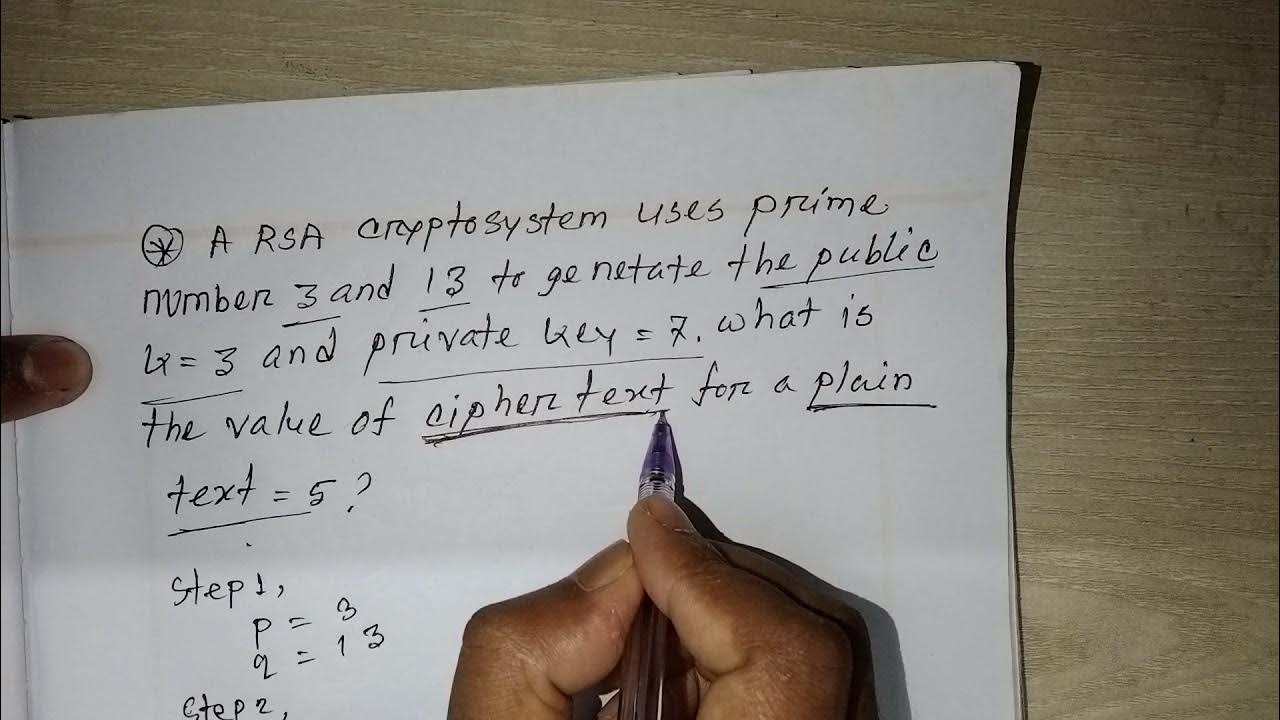 * A RSA cryptosystem uses prime
number 3 and 13 to genetate the public
k = 3 and private key = 7. what is
the value of cipher text for a plain
text = 5?
step 1,
p = 3
q = 13
step 2,